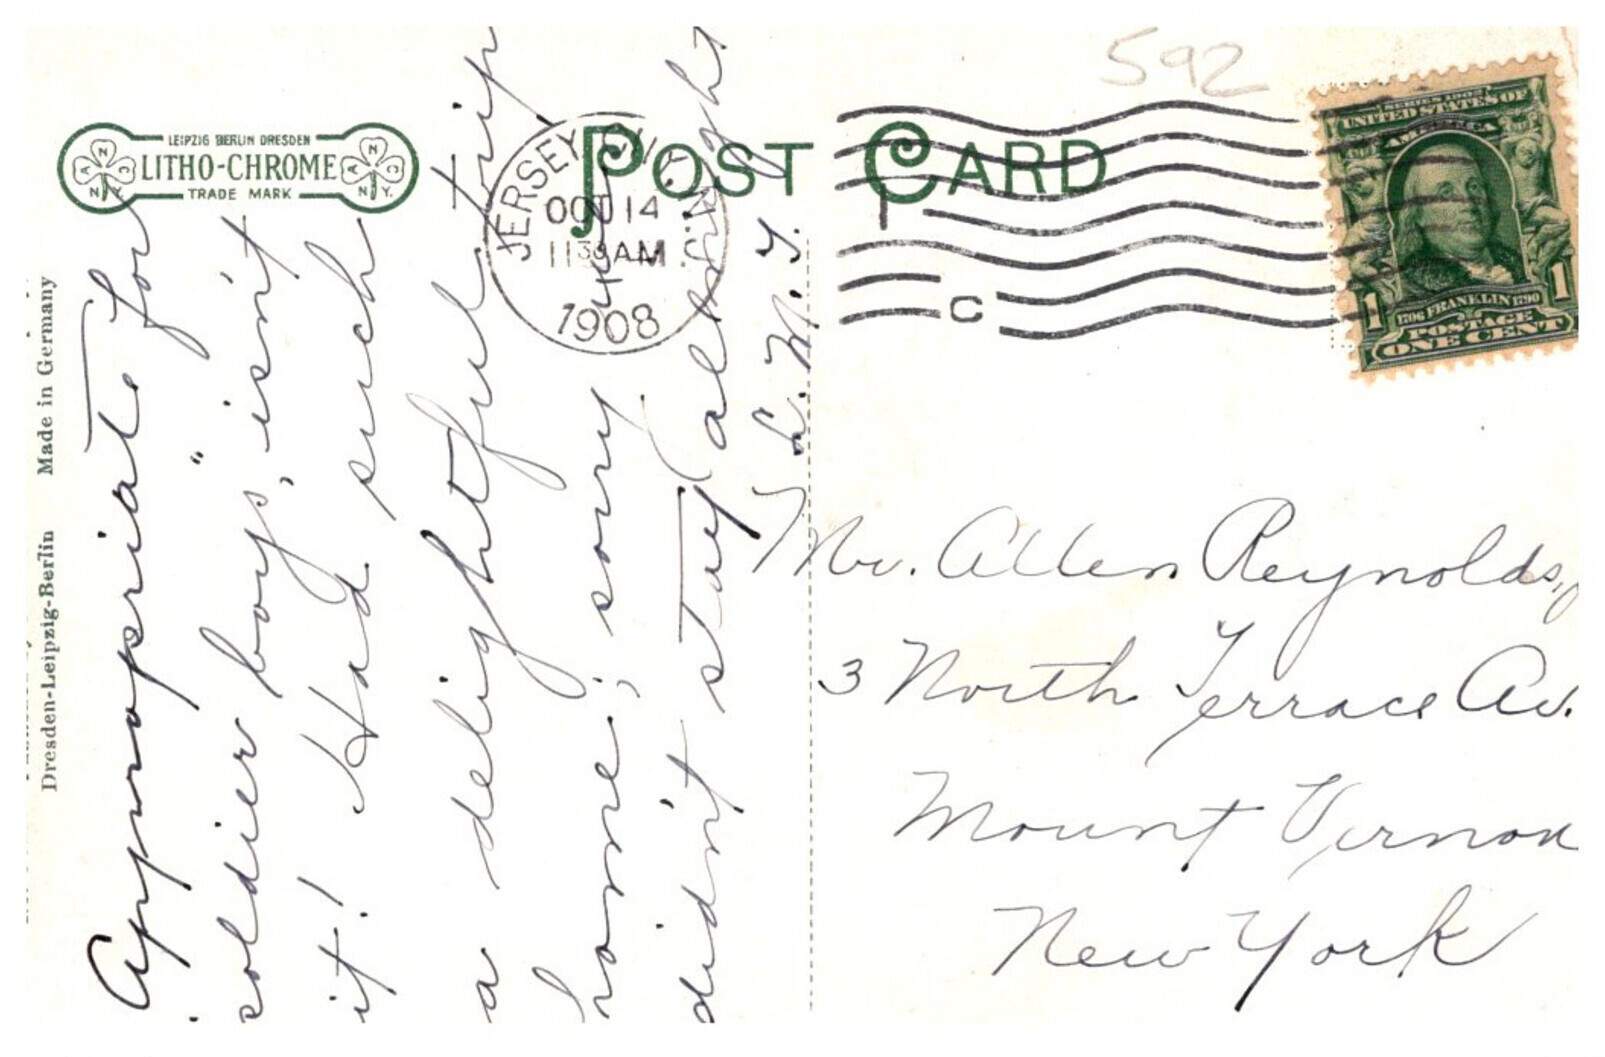 592
LEIPZIG BERLIN DRESDEN
LITHO-CHROME
TRADE MARK
N A N.Y.
N C N.Y.
POST CARD
JERSEY CITY, N.J.
OCT 14
11 30 AM
1908
C
SERIES 1902
UNITED STATES OF
AMERICA
1706 FRANKLIN 1790
POSTAGE
1 1
ONE CENT
Dresden-Leipzig-Berlin Made in Germany
Appropriate for
"soldier boys", isn't
it! Had such
a delightful trip
home; sorry
didn't stay all night
L. M. T.
Mr. Allen Reynolds,
3 North Terrace Av.
Mount Vernon
New York